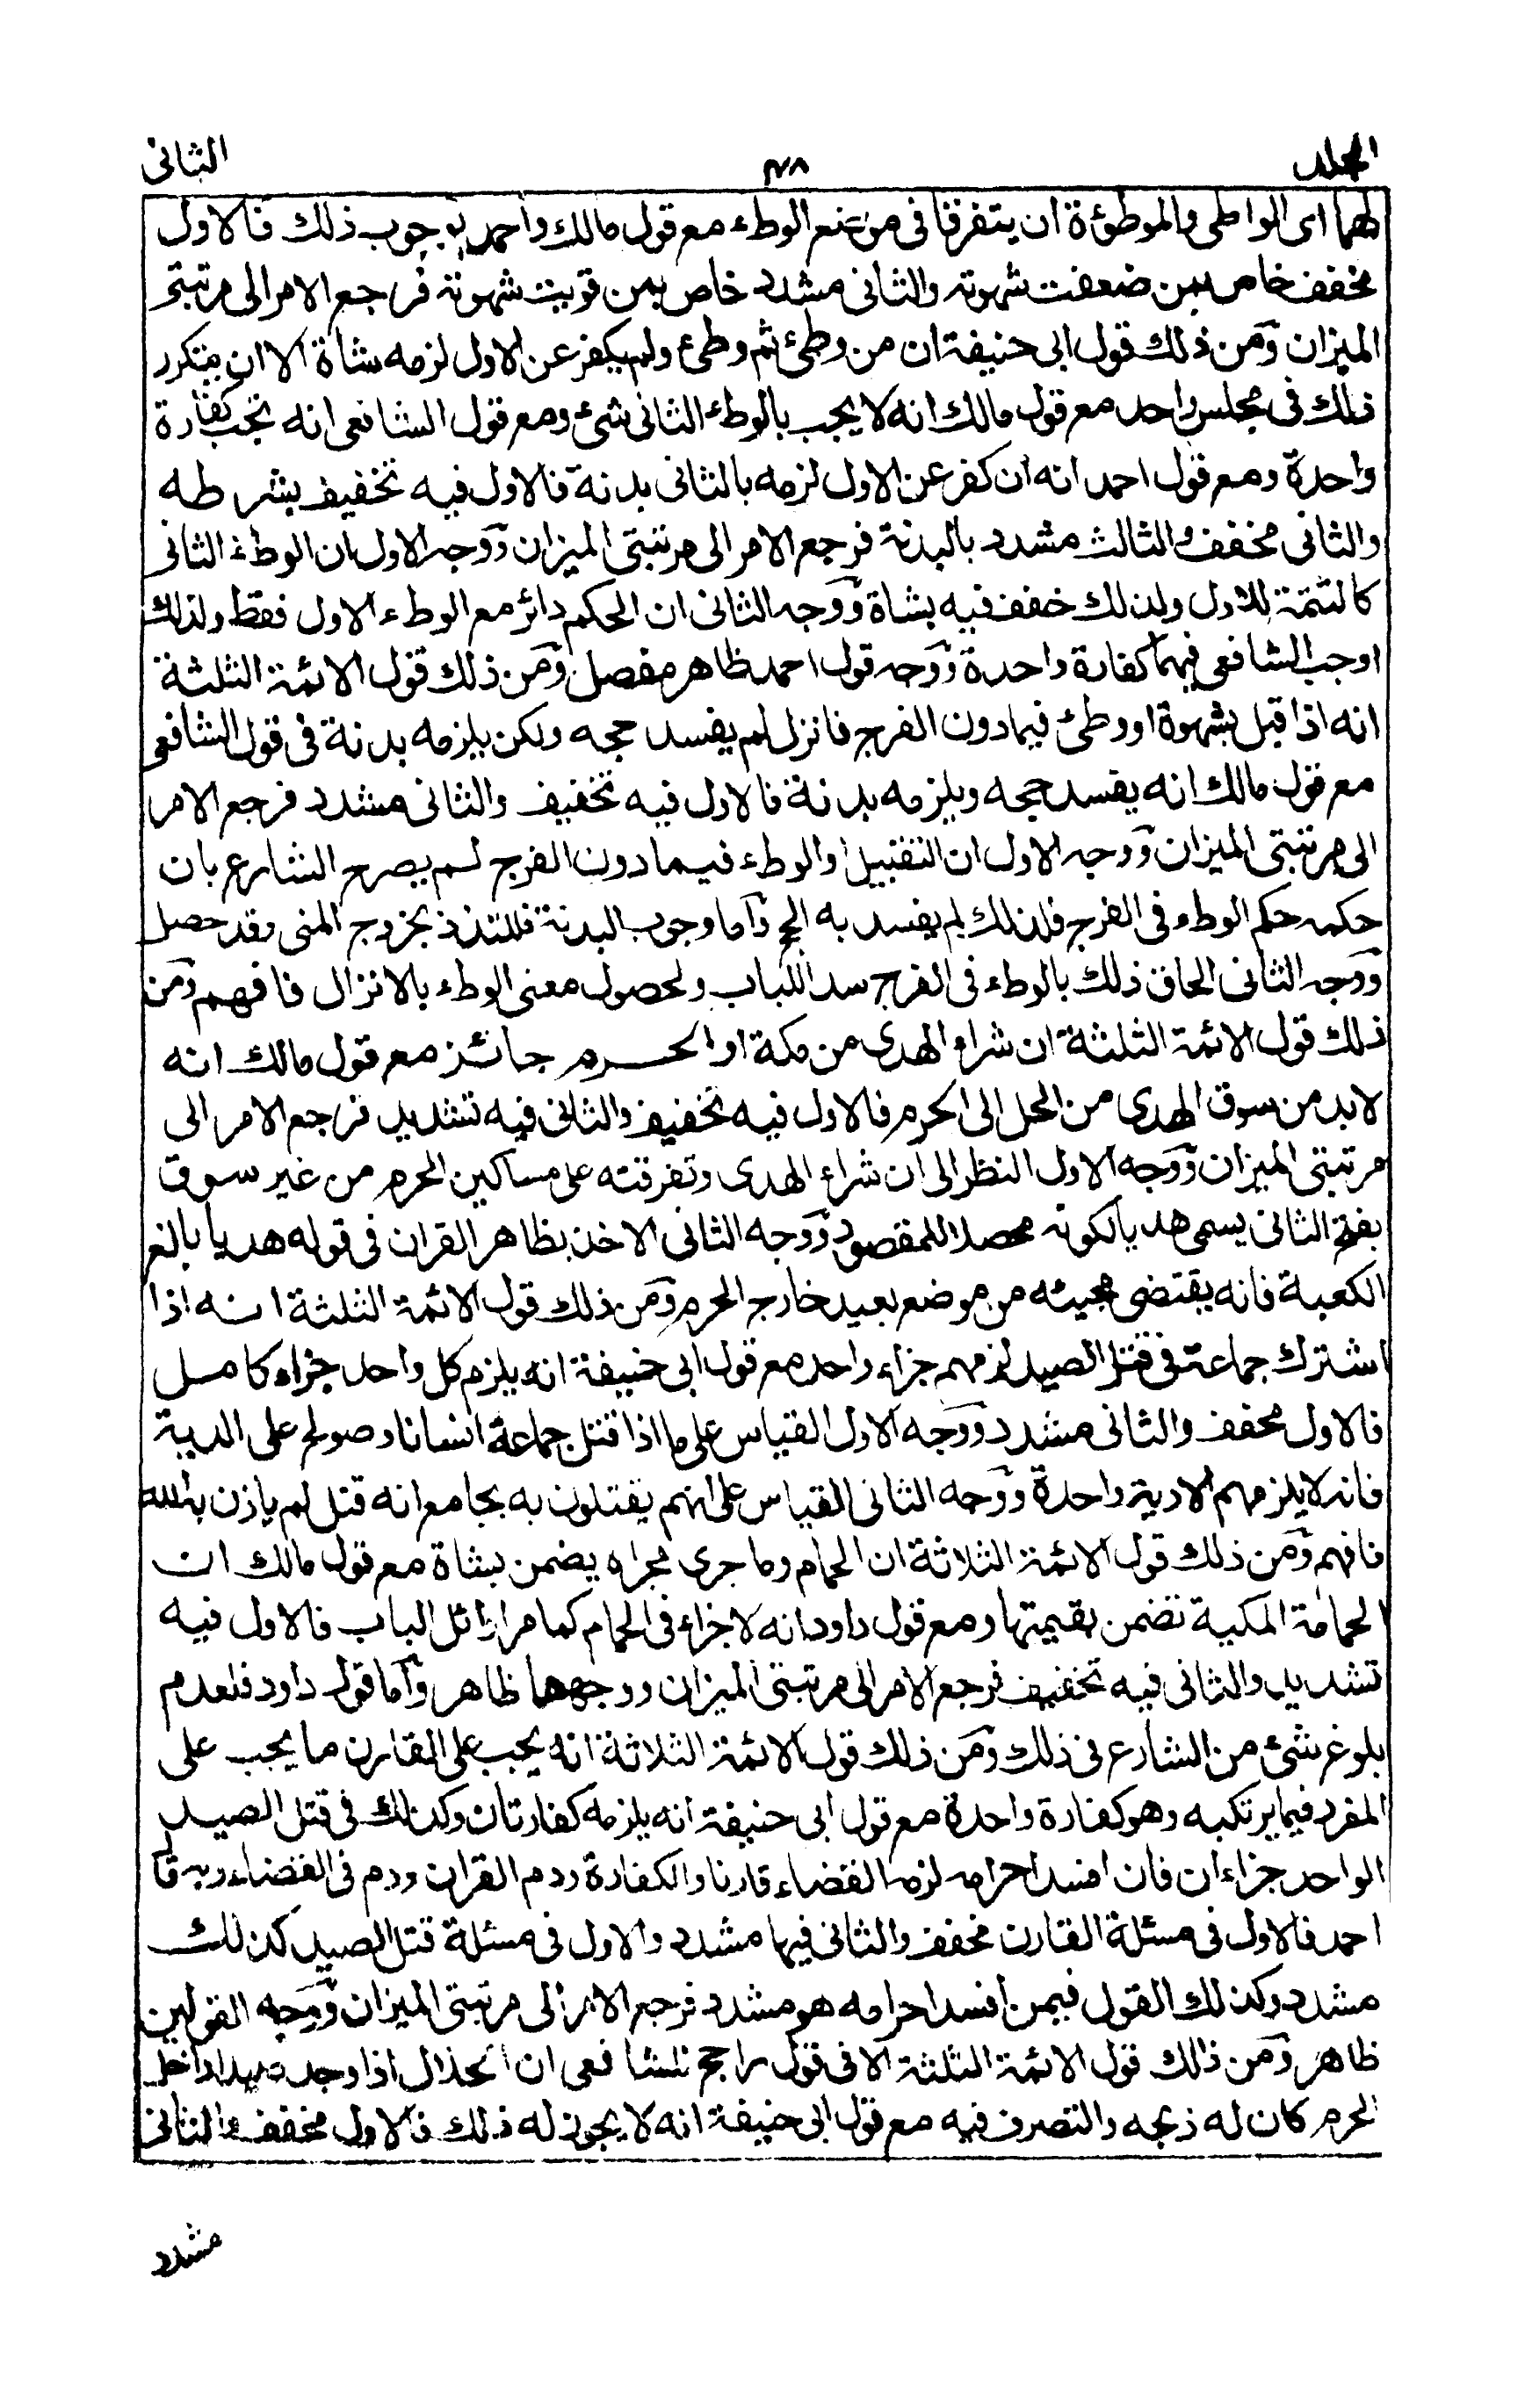 المجلد ٣٨ الثانى
لهما اى الواطى والموطؤة ان يتفرقا فى موضع الوطء مع قول مالك واحمد بوجوب ذلك فالاول
مخفف خاص بمن ضعفت شهوته والثانى مشدد خاص بمن قويت شهوته فرجع الامر الى مرتبتى
الميزان ومن ذلك قول ابى حنيفة ان من وطئ ثم وطئ ولم يكفر عن الاول لزمه شاة الا ان يتكرر
ذلك فى مجلس واحد مع قول مالك انه لا يجب بالوطء الثانى شئ ومع قول الشافعى انه تجب كفارة
واحدة ومع قول احمد انه ان كفر عن الاول لزمه بالثانى بدنة فالاول فيه تخفيف بشرطه
والثانى مخفف والثالث مشدد بالبدنة فرجع الامر الى مرتبتى الميزان ووجه الاول ان الوطء الثانى
كالتتمة للاول ولذلك خفف فيه بشاة ووجه الثانى ان الحكم دائر مع الوطء الاول فقط ولذلك
اوجب الشافعى فيهما كفارة واحدة ووجه قول احمد ظاهر مفصل ومن ذلك قول الائمة الثلثة
انه اذا قبل بشهوة او وطئ فيما دون الفرج فانزل لم يفسد حجه ولكن يلزمه بدنة فى قول الشافعى
مع قول مالك انه يفسد حجه ويلزمه بدنة فالاول فيه تخفيف والثانى مشدد فرجع الامر
الى مرتبتى الميزان ووجه الاول ان التقبيل او الوطء فيما دون الفرج لم يصرح الشارع بان
حكمه حكم الوطء فى الفرج فلذلك لم يفسد به الحج واما وجوب البدنة فللتلذذ بخروج المنى وقد حصل
ووجه الثانى الحاق ذلك بالوطء فى الفرج سدا للباب ولحصول معنى الوطء بالانزال فافهم ومن
ذلك قول الائمة الثلثة ان شراء الهدى من مكة او الحرم جائز مع قول مالك انه
لا بد من سوق الهدى من الحل الى الحرم فالاول فيه تخفيف والثانى فيه تشديد فرجع الامر الى
مرتبتى الميزان ووجه الاول النظر الى ان شراء الهدى وتفرقته على مساكين الحرم من غير سوق
بفتح الثانى يسمى هديا لكونه محصلا للمقصود ووجه الثانى الاخذ بظاهر القران فى قوله هديا بالغ
الكعبة فانه يقتضى مجيئه من موضع بعيد خارج الحرم ومن ذلك قول الائمة الثلثة انه اذا
اشترك جماعة فى قتل الصيد لزمهم جزاء واحد مع قول ابى حنيفة انه يلزم كل واحد جزاء كامل
فالاول مخفف والثانى مشدد ووجه الاول القياس على ما اذا قتل جماعة انسانا وصولح على الدية
فانه لا يلزمهم الا دية واحدة ووجه الثانى القياس على انهم يقتلون به بجامع انه قتل لم ياذن به الله
فافهم ومن ذلك قول الائمة الثلاثة ان الحمام وما جرى مجراه يضمن بشاة مع قول مالك ان
الحمامة المكية تضمن بقيمتها ومع قول داود انه لا جزاء فى الحمام كما مر اوائل الباب فالاول فيه
تشديد والثانى فيه تخفيف فرجع الامر الى مرتبتى الميزان ووجههما ظاهر واما قول داود فلعدم
بلوغ شئ من الشارع فى ذلك ومن ذلك قول الائمة الثلاثة انه يجب على القارن ما يجب على
المفرد فيما يرتكبه وهو كفارة واحدة مع قول ابى حنيفة انه يلزمه كفارتان وكذلك فى قتل الصيد
الواحد جزاءان فان افسد احرامه لزمه القضاء قارنا والكفارة ودم القران ودم فى القضاء وبه قال
احمد فالاول فى مسئلة القارن مخفف والثانى فيها مشدد والاول فى مسئلة قتل الصيد كذلك
مشدد وكذلك القول فيمن افسد احرامه هو مشدد فرجع الامر الى مرتبتى الميزان ووجه القولين
ظاهر ومن ذلك قول الائمة الثلثة الا فى قول راجح للشافعى ان الحلال اذا وجد صيدا داخل
الحرم كان له ذبحه والتصرف فيه مع قول ابى حنيفة انه لا يجوز له ذلك فالاول مخفف والثانى
مشدد